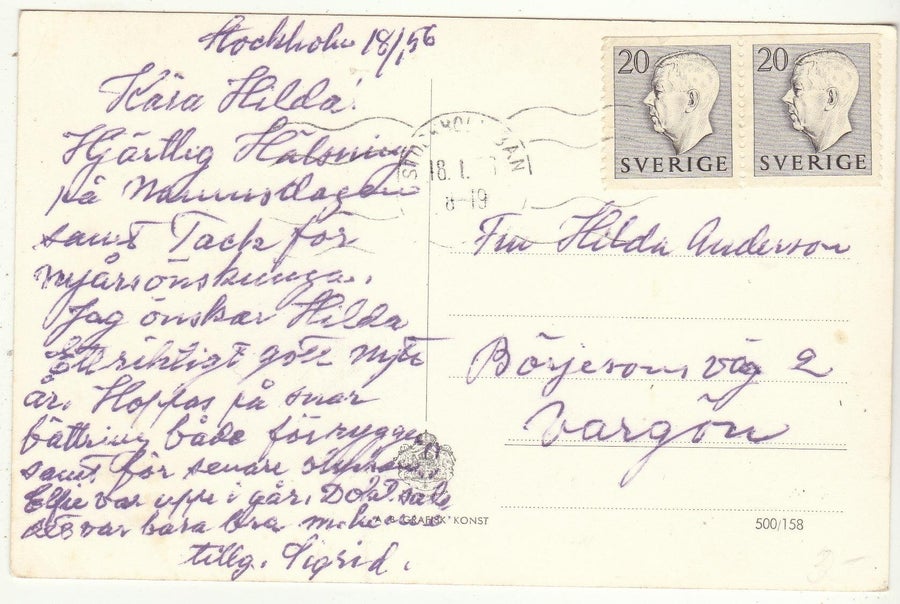 Stockholm 18/1 56
Kära Hilda!
Hjärtlig Hälsning
på Namnsdagen
samt Tack för
nyårsönskningar.
Jag önskar Hilda
Ett riktigt gott nytt
år. Hoppas på snar
bättring både för ryggen
samt för senare
Elsie var uppe i går.
det var bara bra
tillg. Sigrid.
20 SVERIGE
20 SVERIGE
18. 1.
8-19
Fru Hilda Anderson
Börjesons väg 2
Vargön
A.B. GRAFISK KONST
500/158
3-